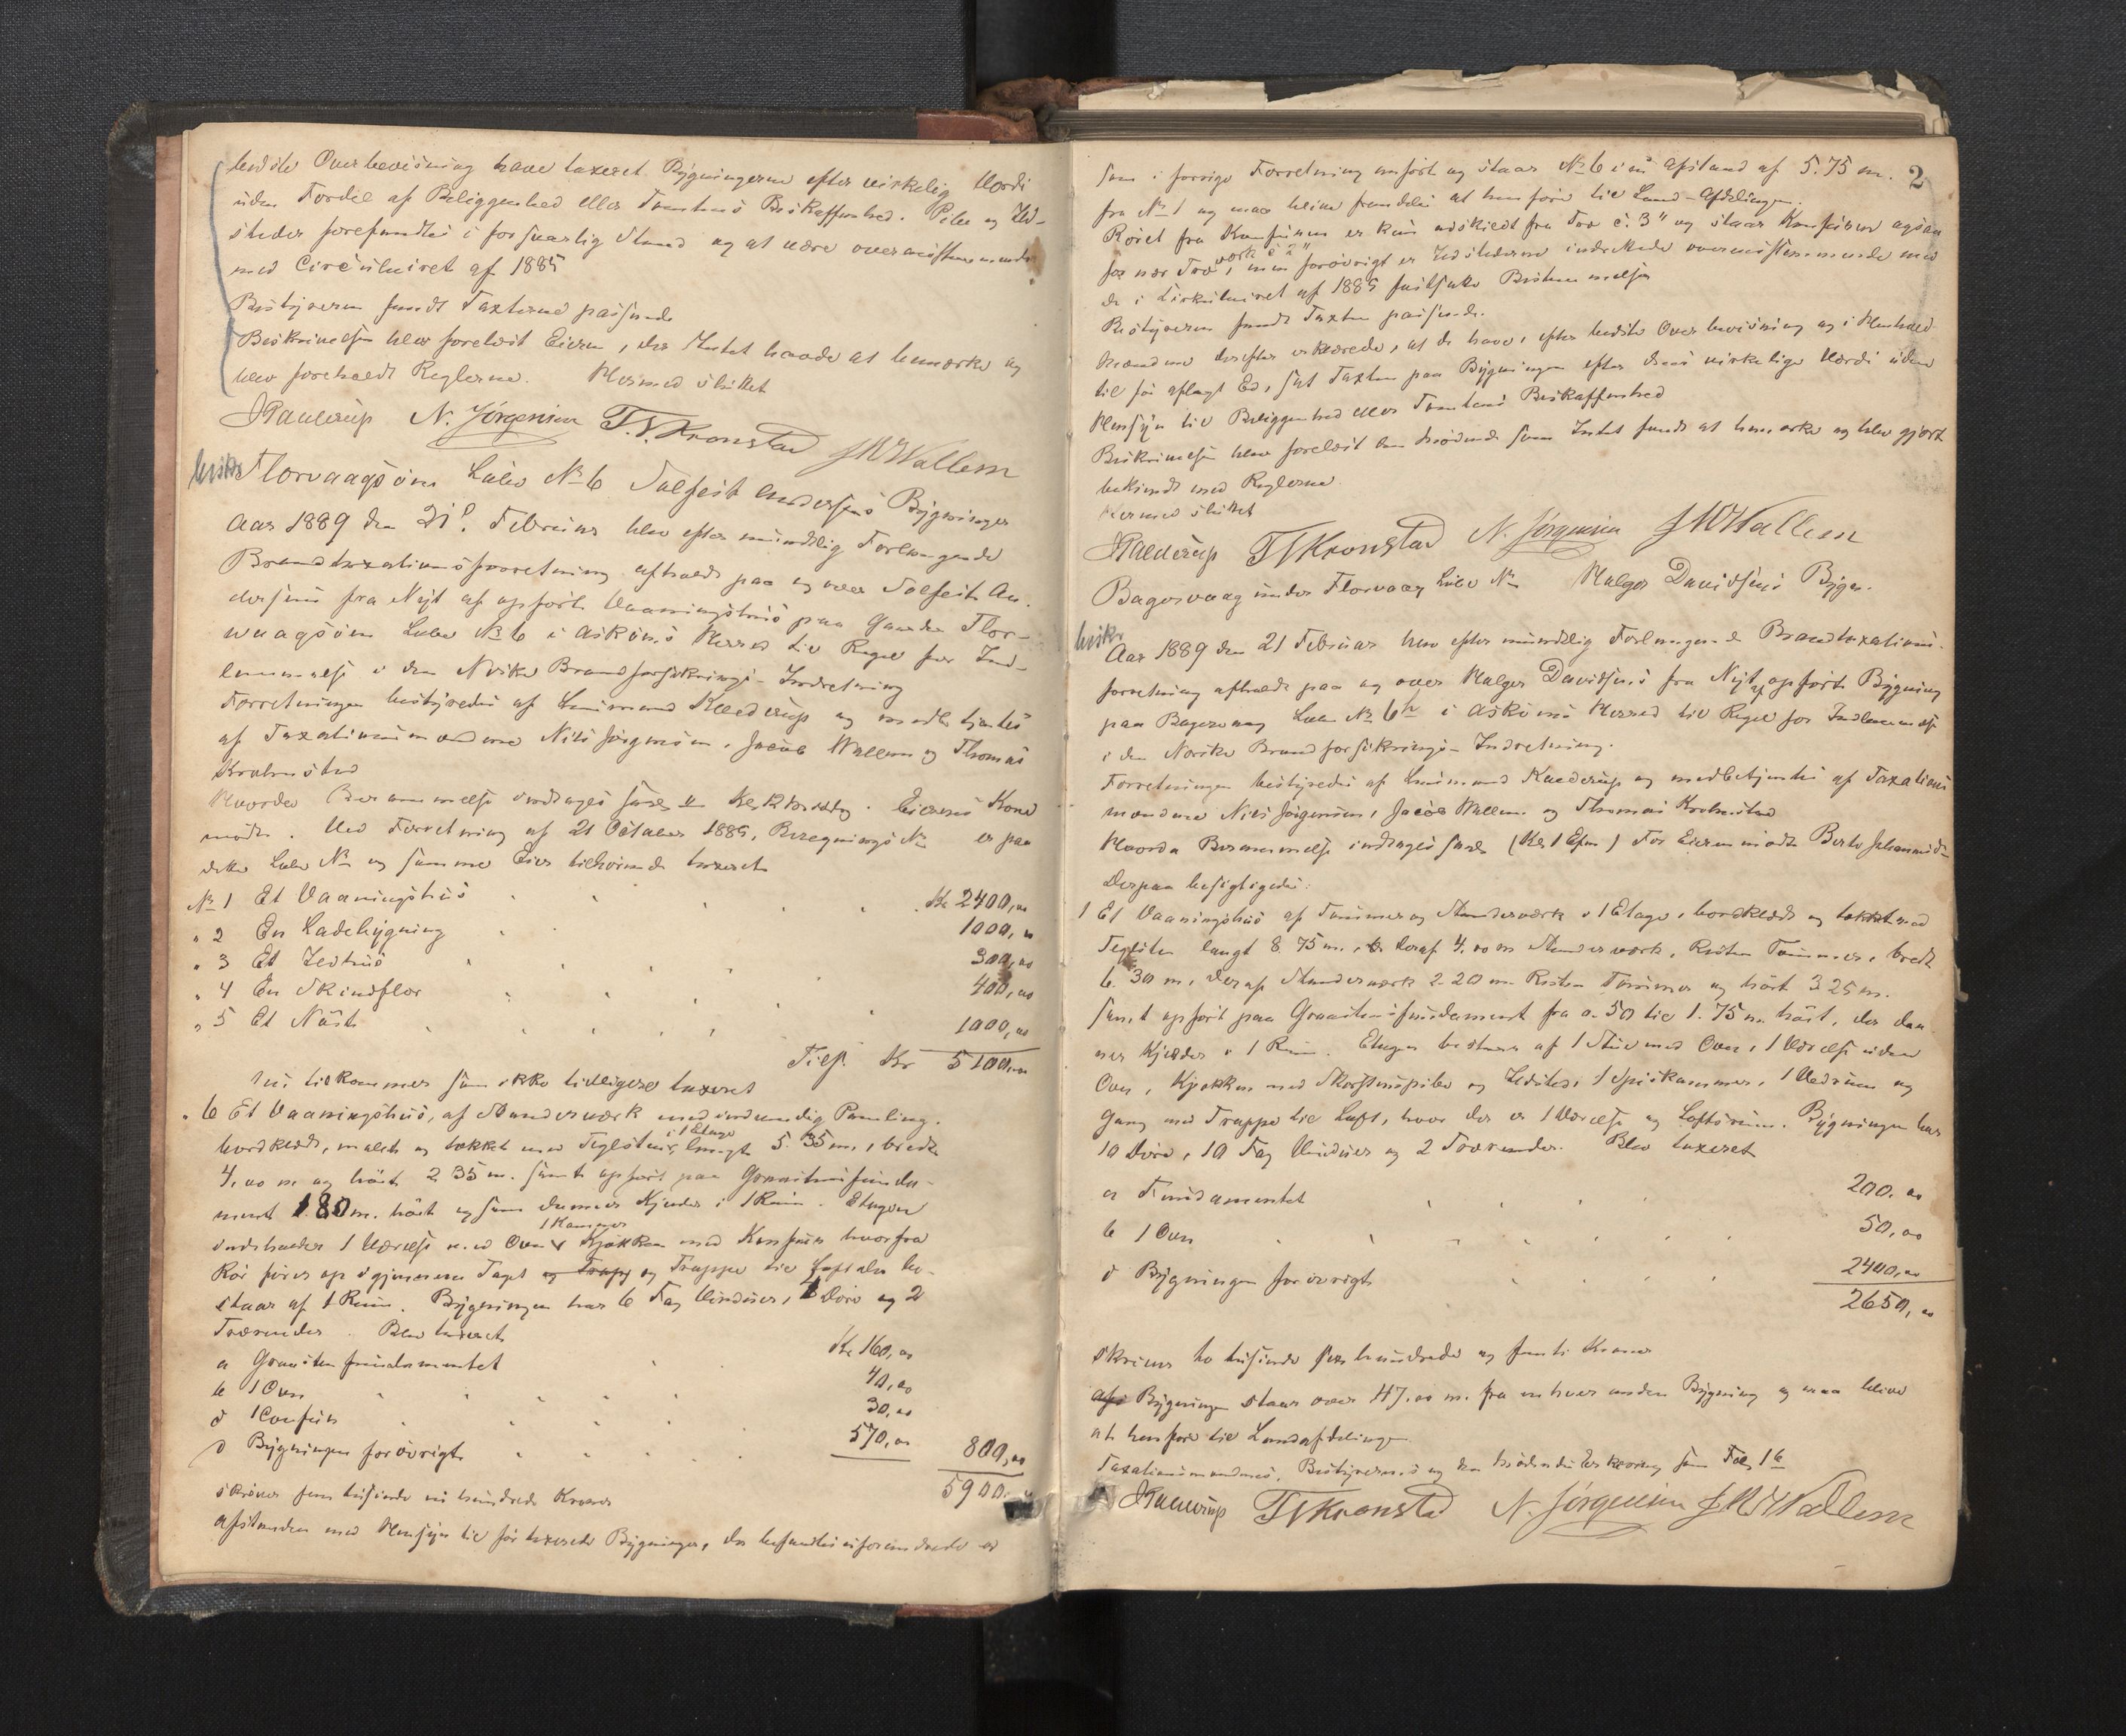 bedste Overbevisning have taxeret Bygningerne efter virkelig Værdi
uden Fordel af Beliggenhed eller Tomtens Beskaffenhed. Piber og Ild-
steder forefandtes i forsvarlig Stand og at være overensstemmende
med Circulairet af 1885
Bestyreren fandt Taxterne passende
Beskrivelsen blev forelæst Eieren, der Intet havde at bemærke og
blev foreholdt Reglerne. Hermed sluttet
N. Jørgensen T. N. Kronstad J W Wallem
Florvaagøen Løbe No 6 Salfeit Andersens Bygninger
Aar 1889 den 21de Februar blev efter mundtlig Forlangende
Brandtaxationsforretning afholdt paa og over Salfeit An-
dersens fra Nyt af opført Vaaningshus paa Gaarden Flor-
vaagøen Løbe No 6 i Askøens Herred til Regel for Ind-
lemmelse i den Norske Brandforsikrings-Indretning
Forretningen bestyredes af Lensmand og medbetjentes
af Taxationsmændene Nils Jørgensen, Jacob Wallem og Thomas
Krohnstad
Hvorda Berammelse inddrages Eierens Kone
mødte. Ved Forretning af 21 October 1885, Beregnings No er paa
dette Løbe No og samme Eier tilhørende taxeret
No 1 Et Vaaningshus Kr 2400,00
" 2 En Ladebygning 1000,00
" 3 Et Ildhus 300,00
" 4 En Skindflor 400,00
" 5 Et Nøst 1000,00
Tils. Kr 5100,00
Nu tilkommer som ikke tidligere taxeret
" 6 Et Vaaningshus, af Standerværk med indvendig Panling,
bordklædt, malet og tækket med Tegelsten, i 1 Etage langt 5.35 m, bredt
4,00 m og høit 2 35 m. samt opført paa Graastensfunda-
ment 1.80 m. høit og som danner Kjelder i 1 Rum. Etagen
indeholder 1 Værelse med Oven, 1 Kammer Kjøkken med Komfur hvorfra
Rør føres op igjennem Taget og Trappe til Loft der be-
staar af 1 Rum. Bygningen har 6 Fag Vinduer, Døre og 2
Tværrender. Blev taxeret
a Graastensfundamentet Kr 160,00
b 1 Oven 40,00
c 1 Comfur 30,00
d Bygningen forøvrigt 570,00 800,00
5900,00
skriver fem tusinde ni hundrede Kroner
Afstanden med Hensyn til før taxerede Bygninger, der befandtes uforandrede er
2
som i forrige Forretning anført og staar No 6 i en Afstand af 5.75 m.
fra No 1 og maa blive fremdeles at henføre til Land-Afdelingen.
Røret fra Komfuren er kun adskiedt fra Træ c. 3" og staar Komfuren ogsaa
for nær Træværk c 2", men forøvrigt er Ildstederne indrettede overensstemmende med
de i Cirkulairet af 1885 fastsatte Bestemmelser
Bestyreren fandt Taxten passende.
Mændene derefter erklærede, at de have, efter bedste Overbevisning og i Henhold
til før aflagt Ed, sat Taxten paa Bygningen efter dens virkelige Værdi uden
Hensyn til Beliggenhed eller Tomtens Beskaffenhed
Beskrivelsen blev forelæst den mødende som Intet fandt at bemærke og blev gjort
bekjendt med Reglerne.
Hermed sluttet
T N Kronstad N. Jørgensen J W Wallem
Bagervaag under Florvaag Løbe No Holger Davidsens Bygn.
Aar 1889 den 21 Februar blev efter mundtlig Forlangende Brandtaxations-
forretning afholdt paa og over Holger Davidsens fra Nyt af opført Bygning
paa Bagervaag Løbe No 6b i Askøens Herred til Regel for Indlemmelse
i den Norske Brandforsikrings-Indretning.
Forretningen bestyredes af Lensmand og medbetjentes af Taxations
mændene Nils Jørgensen, Jacob Wallem og Thomas Krohnstad
Hvorda Berammelse inddrages (Kl 1 Efm) For Eieren mødte Berte
Derpaa besigtigedes:
1 Et Vaaningshus af Tømmer og Standerværk i 1 Etage, bordklædt og tækket med
Teglsten langt 8 75 m. deraf 4.00 m Standerværk, Resten Tømmer, bredt
6 30 m, deraf Standerværk 2 20 m Resten Tømmer og høit 3 25 m.
samt opført paa Graastensfundament fra 0.50 til 1.75 m. høit, der dan
ner Kjelder i 1 Rum. Etagen bestaar af 1 Stue med Oven, 1 Værelse uden
Oven, Kjøkken med Skorstenspibe og Ildsted, 1 Spiskammer, 1 Vedrum og
Gang med Trappe til Loft, hvor der er 1 Værelse og Loftsrum. Bygningen har
10 Døre, 10 Fag Vinduer og 2 Tværrender. Blev taxeret
a Fundamentet 200.00
b 1 Oven 50,00
c Bygningen forøvrigt 2400,00
2650,00
skriver to tusinde sex hundrede og femti Kroner
Bygningen staar over 47.00 m. fra enhver anden Bygning og maa blive
at henføre til Landafdelingen.
Taxationsmændenes, Bestyrerens og den mødendes Erklæring som Fol 1b
T N Kronstad N. Jørgensen J W Wallem